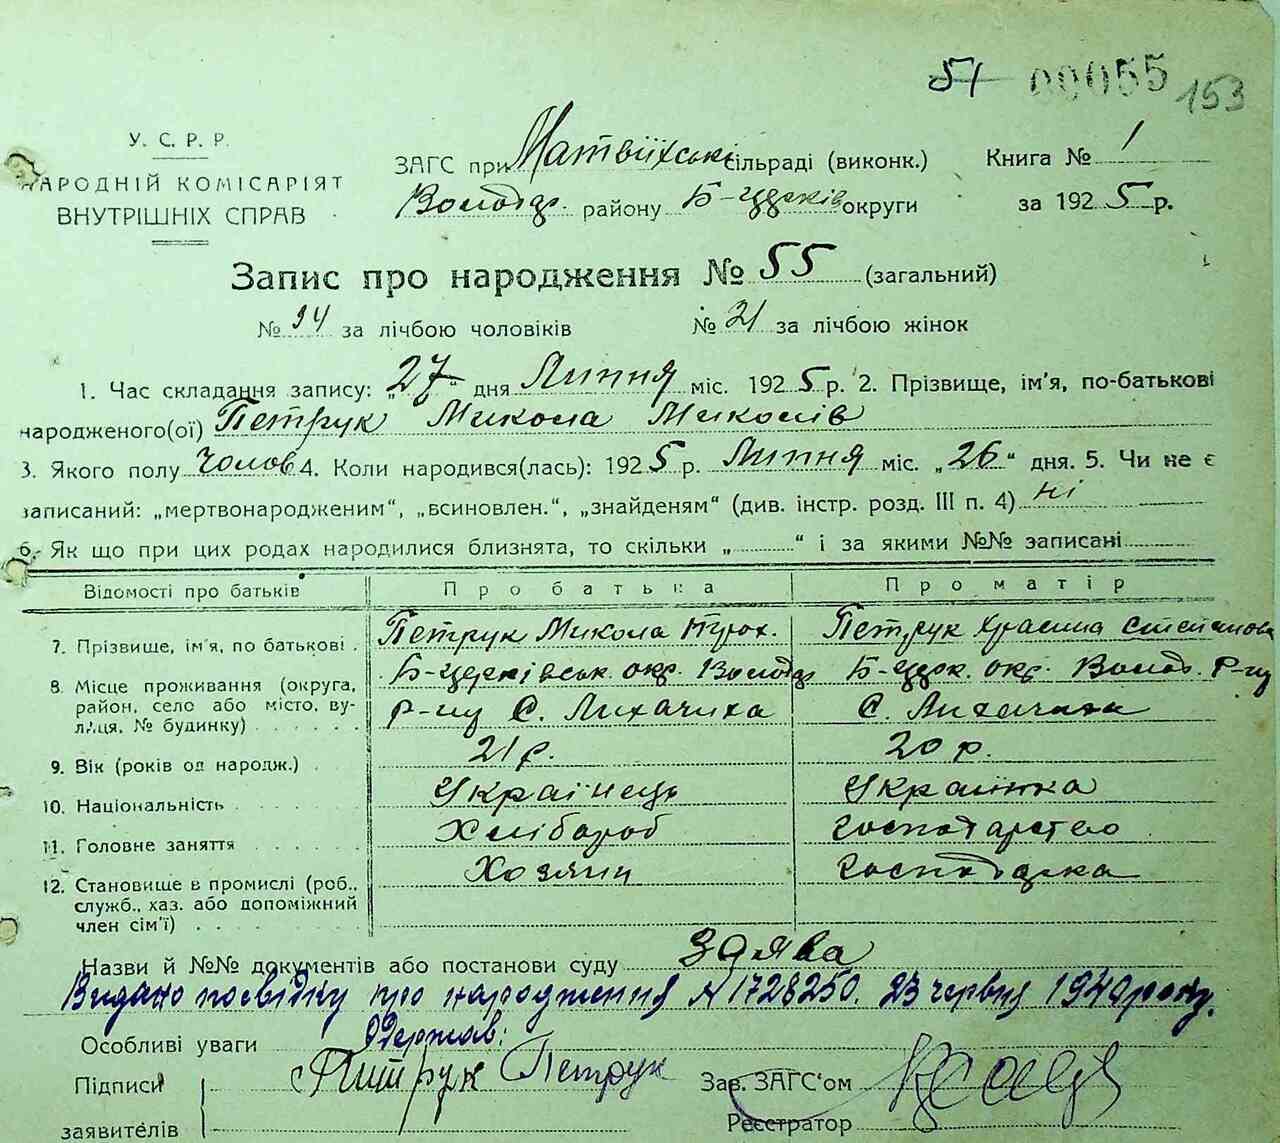 51 00055 153
У. С. Р. Р.
НАРОДНІЙ КОМІСАРІЯТ
ВНУТРІШНІХ СПРАВ
ЗАГС при Матвіїхські сільраді (виконк.) Книга № 1
Володар. району Б-Церків округи за 1925 р.
Запис про народження № 55 (загальний)
№ 34 за лічбою чоловіків № 21 за лічбою жінок
1. Час складання запису: „27" дня Липня міс. 1925 р. 2. Прізвище, ім'я, по-батькові
народженого(ої) Петрук Микола Миколів
3. Якого полу Чолов 4. Коли народився(лась): 1925 р. Липня міс. „26" дня. 5. Чи не є
записаний: „мертвонародженим", „всиновлен.", „знайденям" (див. інстр. розд. III п. 4) ні
6. Як що при цих родах народилися близнята, то скільки „ " і за якими №№ записані
Відомості про батьків Про батька Про матір
7. Прізвище, ім'я, по батькові Петрук Микола Петрук Степанова
8. Місце проживання (округа, район, село або місто, вулиця, № будинку) Б-Церківськ. окр. Володар р-ну С. Лихачиха Б-Церк. окр. Волод. р-ну С. Лихачиха
9. Вік (років од народж.) 21 р. 20 р.
10. Національність Українець Українка
11. Головне заняття Хлібороб господарством
12. Становище в промислі (роб., служб., хаз. або допоміжний член сім'ї) Хозяин господарка
Назви й №№ документів або постанови суду Заява
Видано посвідку про народження № 1728250. 23 червня 1940 року.
Особливі уваги Держав:
Підписи заявителів Питрук Петрук
Зав. ЗАГС'ом
Реєстратор